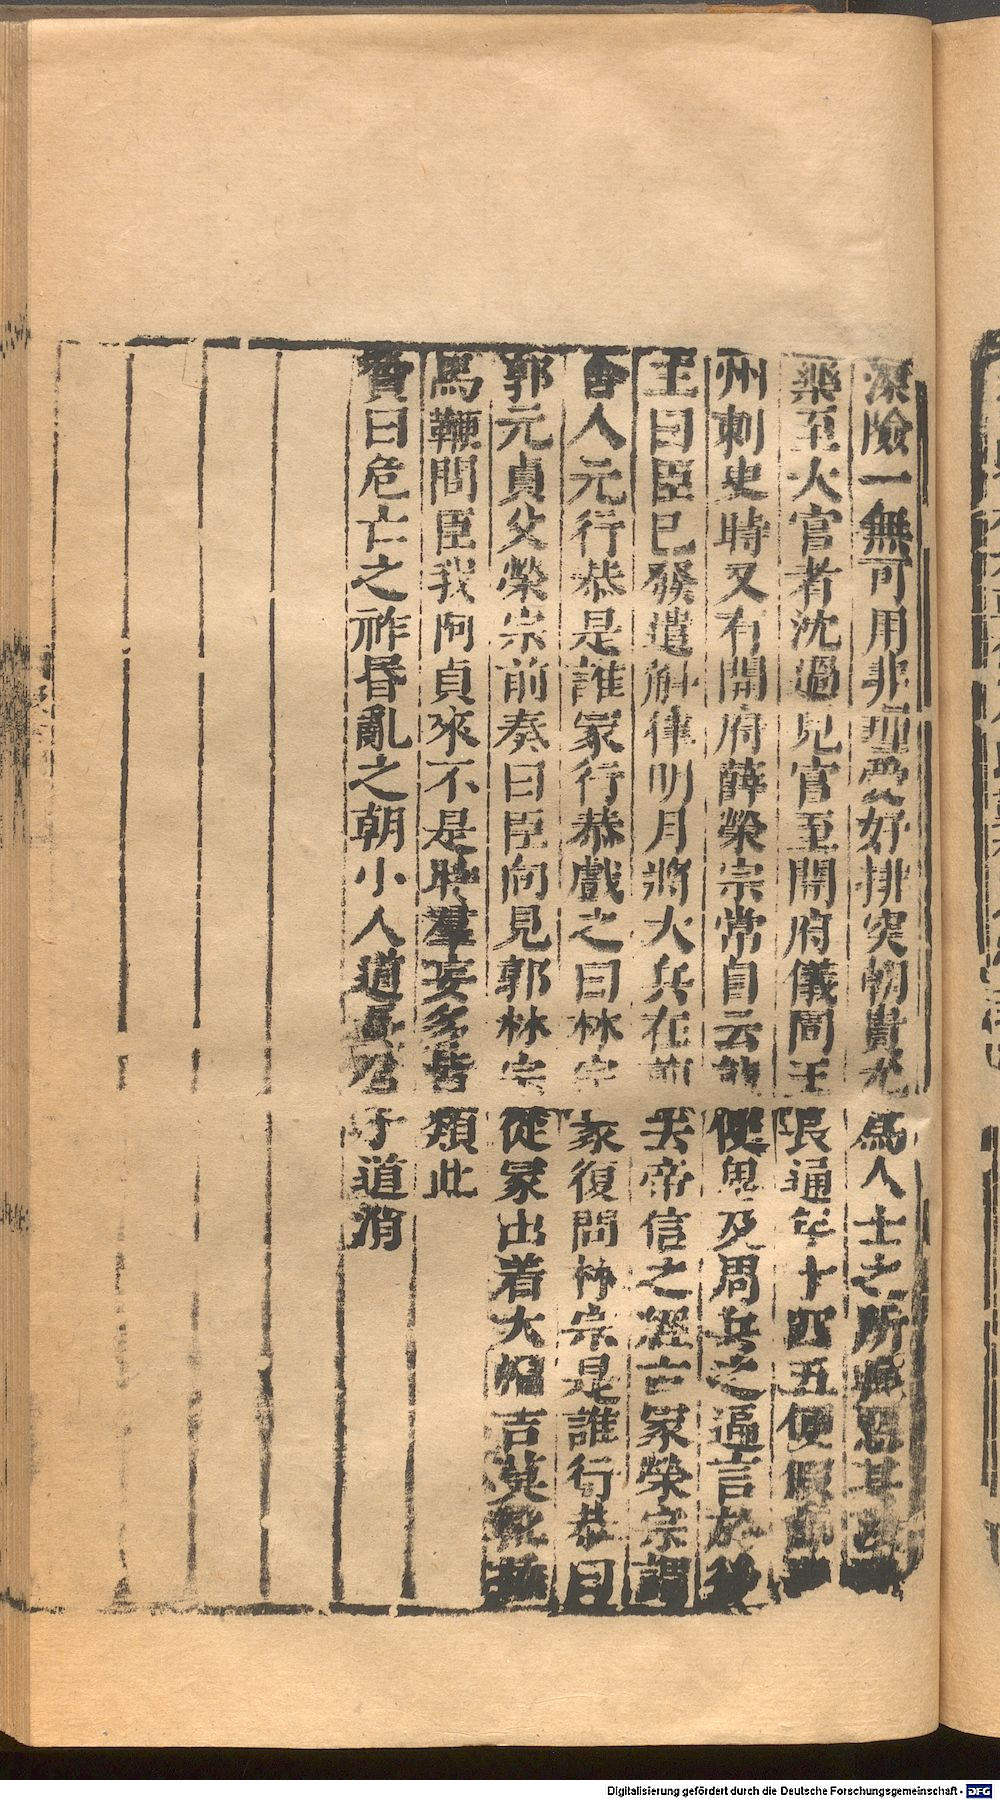 深險一無可用非理愛好排突朝貴尤爲人士之所疾惡其
樂至大官者沈過兒官至開府儀同王長通年十四五便假節
州刺史時又有開府薛榮宗常自云能使鬼及周兵之逼言於後
主曰臣已發遣斛律明月將大兵在前去帝信之經古冢榮宗謂
舍人元行恭是誰冢行恭戲之曰林宗冢復問林宗是誰行恭曰
郭元貞父榮宗前奏曰臣向見郭林宗從冢出着大帽吉莫靴捶
馬鞭問臣我阿貞來不是時羣妄多皆類此
贊曰危亡之祚昬亂之朝小人道長君子道消
Digitalisierung gefördert durch die Deutsche Forschungsgemeinschaft - DFG